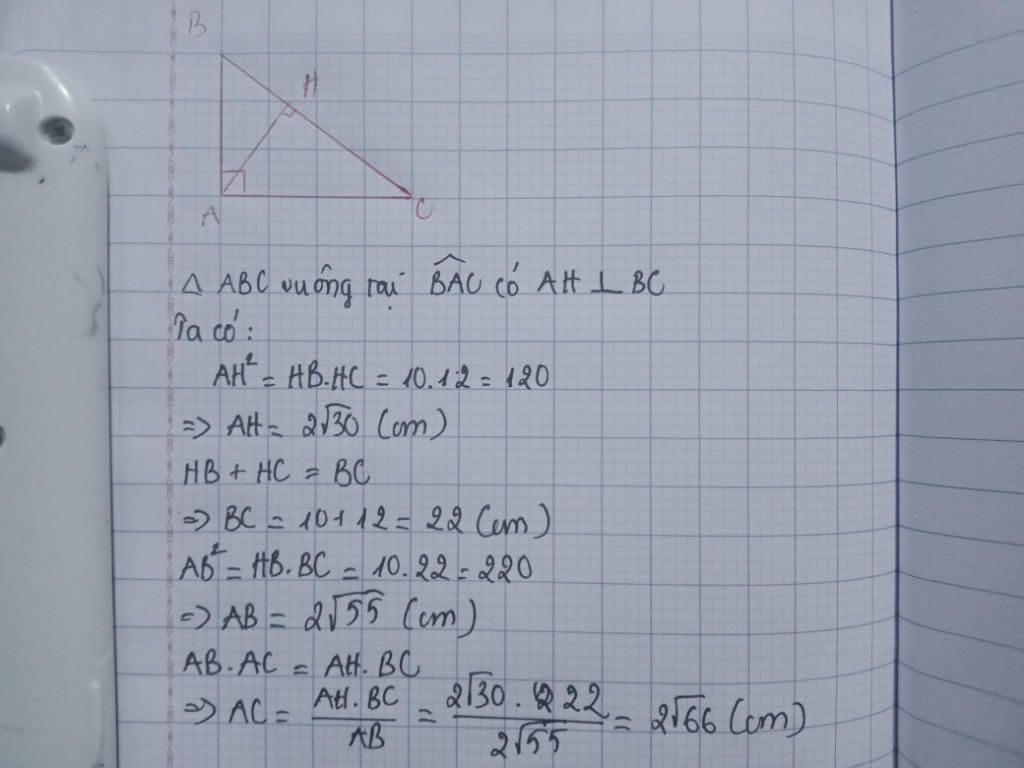 B
H
A
C
△ ABC vuông tại \widehat{BAC} có AH ⊥ BC
Ta có:
AH² = HB.HC = 10.12 = 120
=> AH = 2√30 (cm)
HB + HC = BC
=> BC = 10+12 = 22 (cm)
AB² = HB.BC = 10.22 = 220
=> AB = 2√55 (cm)
AB.AC = AH.BC
=> AC = \frac{AH.BC}{AB} = \frac{2√30 . 22}{2√55} = 2√66 (cm)